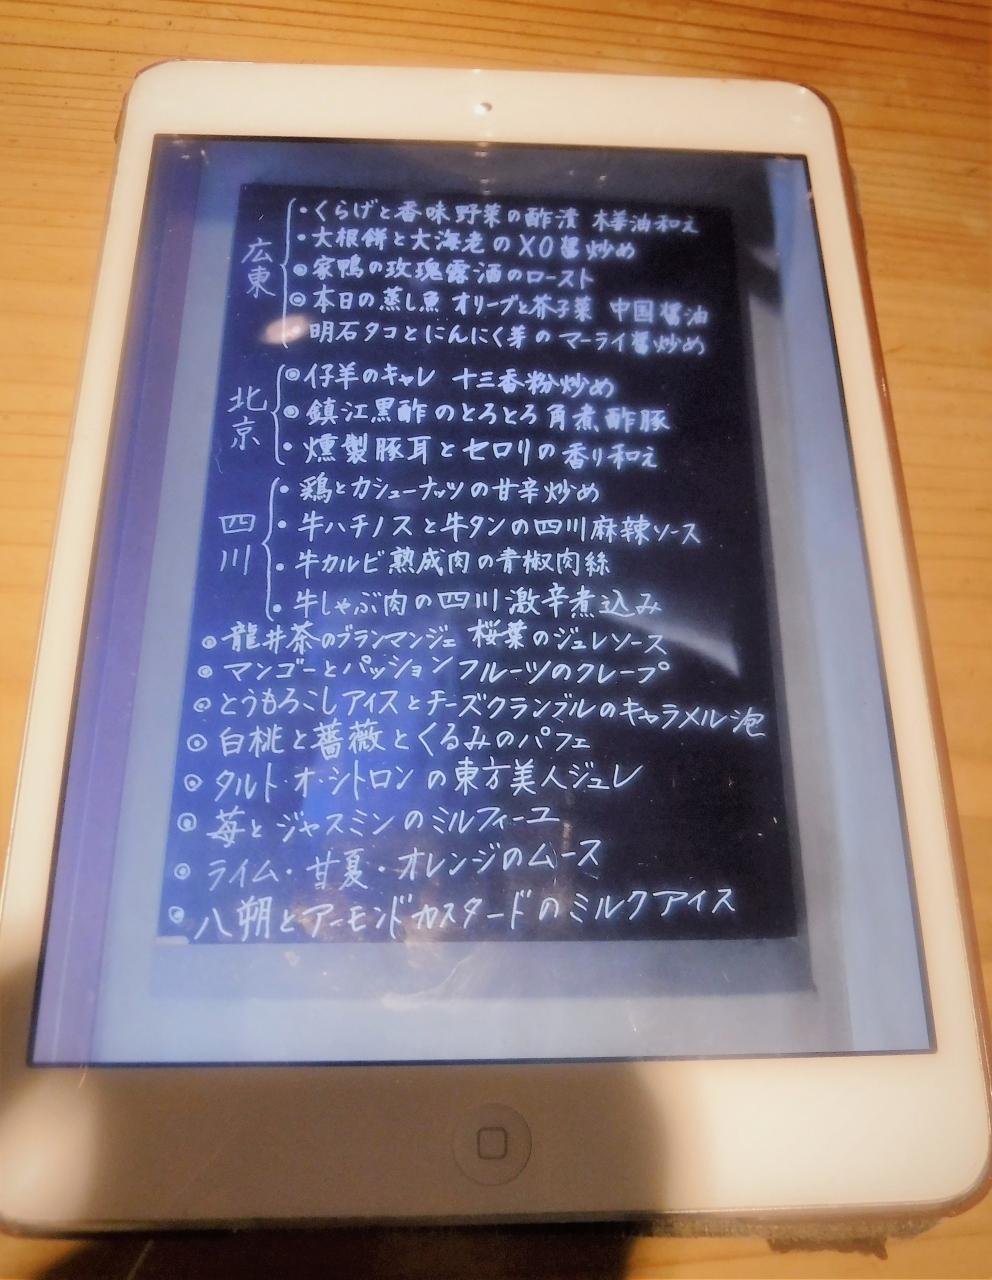 広東
・くらげと香味野菜の酢漬 木姜油和え
・大根餅と大海老のXO醤炒め
◎家鴨の玫瑰露酒のロースト
◎本日の蒸し魚 オリーブと芥子菜 中国醤油
・明石タコとにんにく芽のマーライ醤炒め
北京
◎仔羊のキャレ 十三香粉炒め
◎鎮江黒酢のとろとろ角煮酢豚
・燻製豚耳とセロリの香り和え
四川
・鶏とカシューナッツの甘辛炒め
・牛ハチノスと牛タンの四川麻辣ソース
・牛カルビ熟成肉の青椒肉絲
・牛しゃぶ肉の四川激辛煮込み
◎龍井茶のブランマンジェ 桜葉のジュレソース
◎マンゴーとパッションフルーツのクレープ
◎とうもろこしアイスとチーズクランブルのキャラメル泡
◎白桃と薔薇とくるみのパフェ
◎タルト・オ・シトロンの東方美人ジュレ
◎苺とジャスミンのミルフィーユ
◎ライム・甘夏・オレンジのムース
◎八朔とアーモンドカスタードのミルクアイス